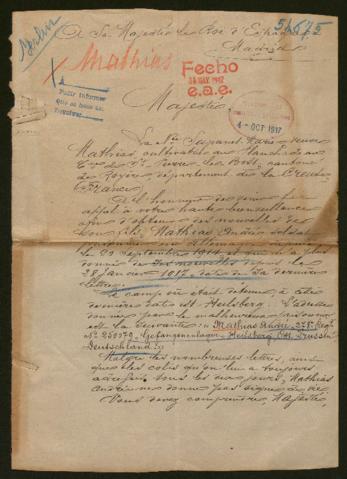 Berlin
A Sa Majesté le Roi d'Espagne
Madrid
Mathias
Fecho
28 MAY 1917
e.a.e.
4-OCT 1917
Majesté,
La Née Suzanet Marie veuve
Mathias, cultivateur au Planchadeau
Cne de St Pierre-le-Bost, canton
de Royère, département de la Creuse
France
A l'honneur de
appel à votre haute bienveillance
afin d'obtenir des nouvelles de
son fils, Mathias André soldat
prisonnier en Allemagne depuis
le septembre 1914 et n'a plus
donné de ses nouvelles depuis le
28 janvier 1917, date de sa dernière
lettre.
Le camp où était détenu, à cette
dernière date est Heilsberg. L'adresse
donnée par le malheureux prisonnier
est la suivante: Mathias André, 278e Regt
Gefangenenlager Heilsberg Ost. Preussen
Deutschland.
Malgré les nombreuses lettres, ainsi
que les colis qu'on lui a toujours
adressés tous les jours, Mathias
André ne donne pas signe de vie
Vous devez comprendre, Majesté,